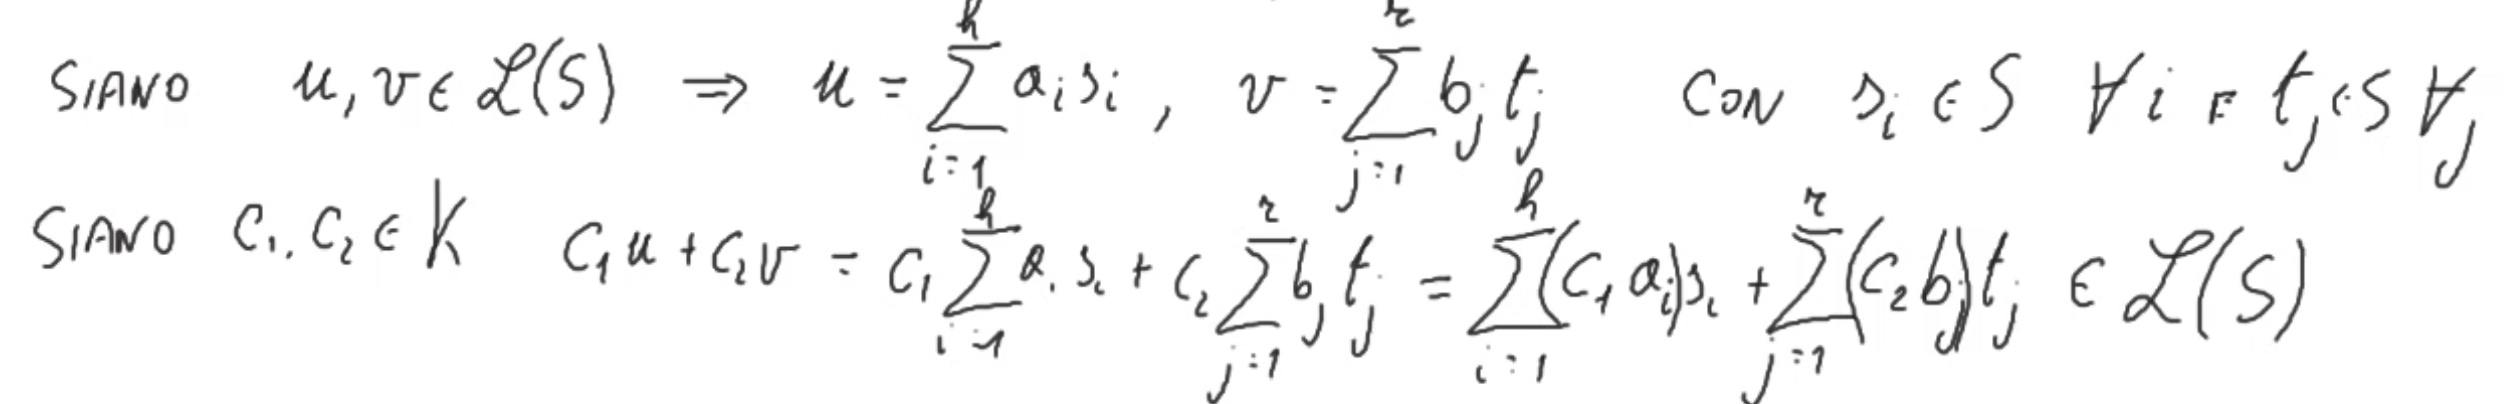 SIANO u, v ∈ ℒ(S) ⇒ u = ∑_{i=1}^{h} a_i s_i , v = ∑_{j=1}^{r} b_j t_j CON s_i ∈ S ∀ i E t_j ∈ S ∀ j
SIANO C_1, C_2 ∈ K C_1 u + C_2 v = C_1 ∑_{i=1}^{h} a_i s_i + C_2 ∑_{j=1}^{r} b_j t_j = ∑_{i=1}^{h} (C_1 a_i) s_i + ∑_{j=1}^{r} (C_2 b_j) t_j ∈ ℒ(S)